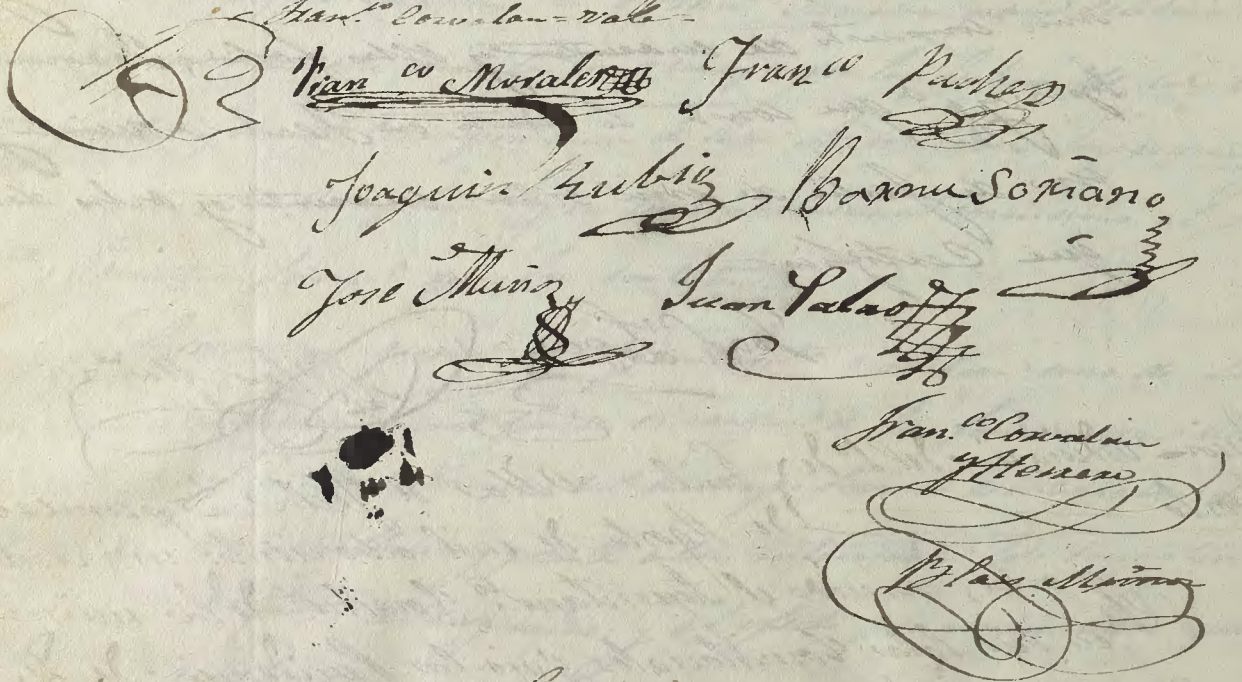 Fran.co Corvalan = vale =
Fran co Morales Fran co Puche
Joaquin Rubio Barnu Soriano
Jose Muñoz Juan Palao
Fran.co Corvalan
y Herrero
Blas Muñoz